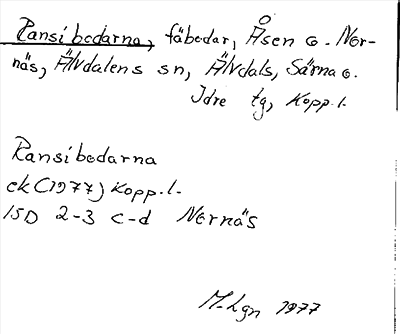 Ransibodarna, fäbodar, Åsen o. Nor-
näs, Älvdalens sn, Älvdals, Särna o.
Idre tg, Kopp.l.
Ransibodarna
ek (1977) Kopp.l.
15D 2-3 c-d Nornäs
M-Lgn 1977